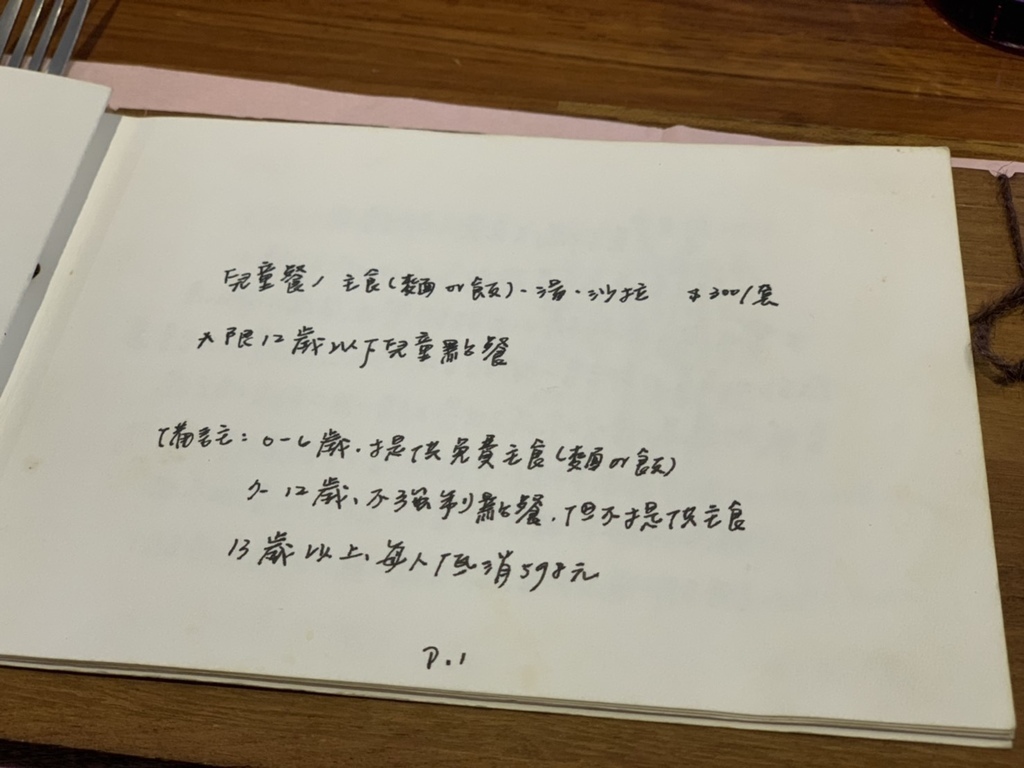 兒童餐/主食(麵or飯)、湯、沙拉 $300/套
*限12歲以下兒童點餐
備註:0-6歲、提供免費主食(麵or飯)
7-12歲、不強制點餐、但不提供主食
13歲以上、每人低消598元
P.1